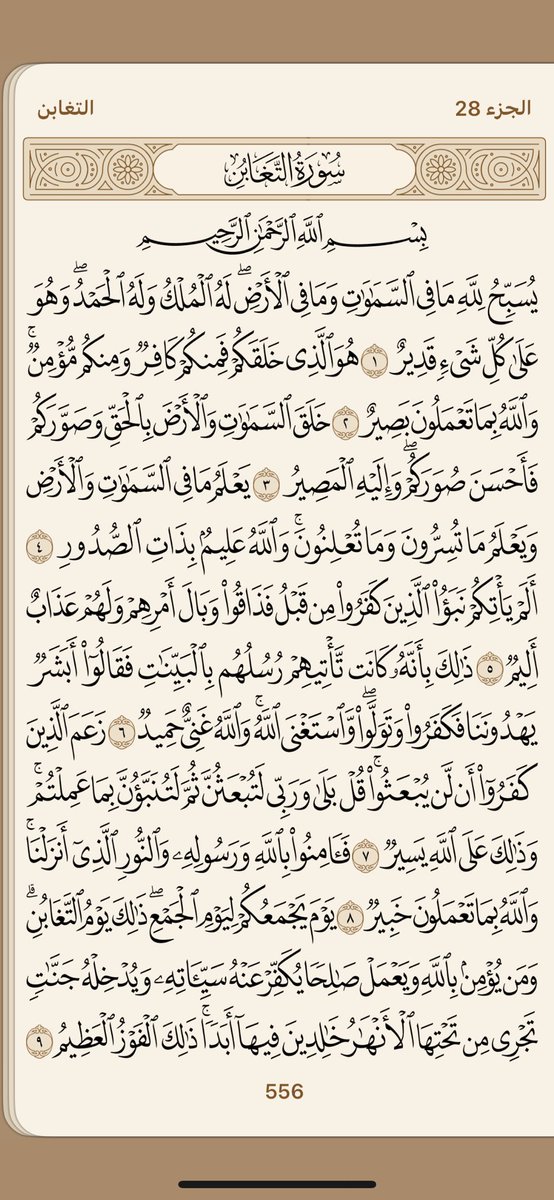 الجزء 28
التغابن
سُورَةُ التَّغَابُنِ
بِسْمِ اللَّهِ الرَّحْمَٰنِ الرَّحِيمِ
يُسَبِّحُ لِلَّهِ مَا فِي السَّمَٰوَٰتِ وَمَا فِي الْأَرْضِۖ لَهُ الْمُلْكُ وَلَهُ الْحَمْدُۖ وَهُوَ
عَلَىٰ كُلِّ شَيْءٍ قَدِيرٌ ١ هُوَ الَّذِي خَلَقَكُمْ فَمِنكُمْ كَافِرٌ وَمِنكُم مُّؤْمِنٌۚ
وَاللَّهُ بِمَا تَعْمَلُونَ بَصِيرٌ ٢ خَلَقَ السَّمَٰوَٰتِ وَالْأَرْضَ بِالْحَقِّ وَصَوَّرَكُمْ
فَأَحْسَنَ صُوَرَكُمْۖ وَإِلَيْهِ الْمَصِيرُ ٣ يَعْلَمُ مَا فِي السَّمَٰوَٰتِ وَالْأَرْضِ
وَيَعْلَمُ مَا تُسِرُّونَ وَمَا تُعْلِنُونَۚ وَاللَّهُ عَلِيمٌۢ بِذَاتِ الصُّدُورِ ٤
أَلَمْ يَأْتِكُمْ نَبَؤُاْ الَّذِينَ كَفَرُواْ مِن قَبْلُ فَذَاقُواْ وَبَالَ أَمْرِهِمْ وَلَهُمْ عَذَابٌ
أَلِيمٌ ٥ ذَٰلِكَ بِأَنَّهُۥ كَانَت تَّأْتِيهِمْ رُسُلُهُم بِالْبَيِّنَٰتِ فَقَالُوٓاْ أَبَشَرٌ
يَهْدُونَنَا فَكَفَرُواْ وَتَوَلَّواْۖ وَّاسْتَغْنَى اللَّهُۚ وَاللَّهُ غَنِيٌّ حَمِيدٌ ٦ زَعَمَ الَّذِينَ
كَفَرُوٓاْ أَن لَّن يُبْعَثُواْۚ قُلْ بَلَىٰ وَرَبِّي لَتُبْعَثُنَّ ثُمَّ لَتُنَبَّؤُنَّ بِمَا عَمِلْتُمْۚ
وَذَٰلِكَ عَلَى اللَّهِ يَسِيرٌ ٧ فَـَٔامِنُواْ بِاللَّهِ وَرَسُولِهِۦ وَالنُّورِ الَّذِيٓ أَنزَلْنَاۚ
وَاللَّهُ بِمَا تَعْمَلُونَ خَبِيرٌ ٨ يَوْمَ يَجْمَعُكُمْ لِيَوْمِ الْجَمْعِۖ ذَٰلِكَ يَوْمُ التَّغَابُنِۗ
وَمَن يُؤْمِنۢ بِاللَّهِ وَيَعْمَلْ صَٰلِحًا يُكَفِّرْ عَنْهُ سَيِّـَٔاتِهِۦ وَيُدْخِلْهُ جَنَّٰتٍ
تَجْرِي مِن تَحْتِهَا الْأَنْهَٰرُ خَٰلِدِينَ فِيهَآ أَبَدًاۚ ذَٰلِكَ الْفَوْزُ الْعَظِيمُ ٩
556